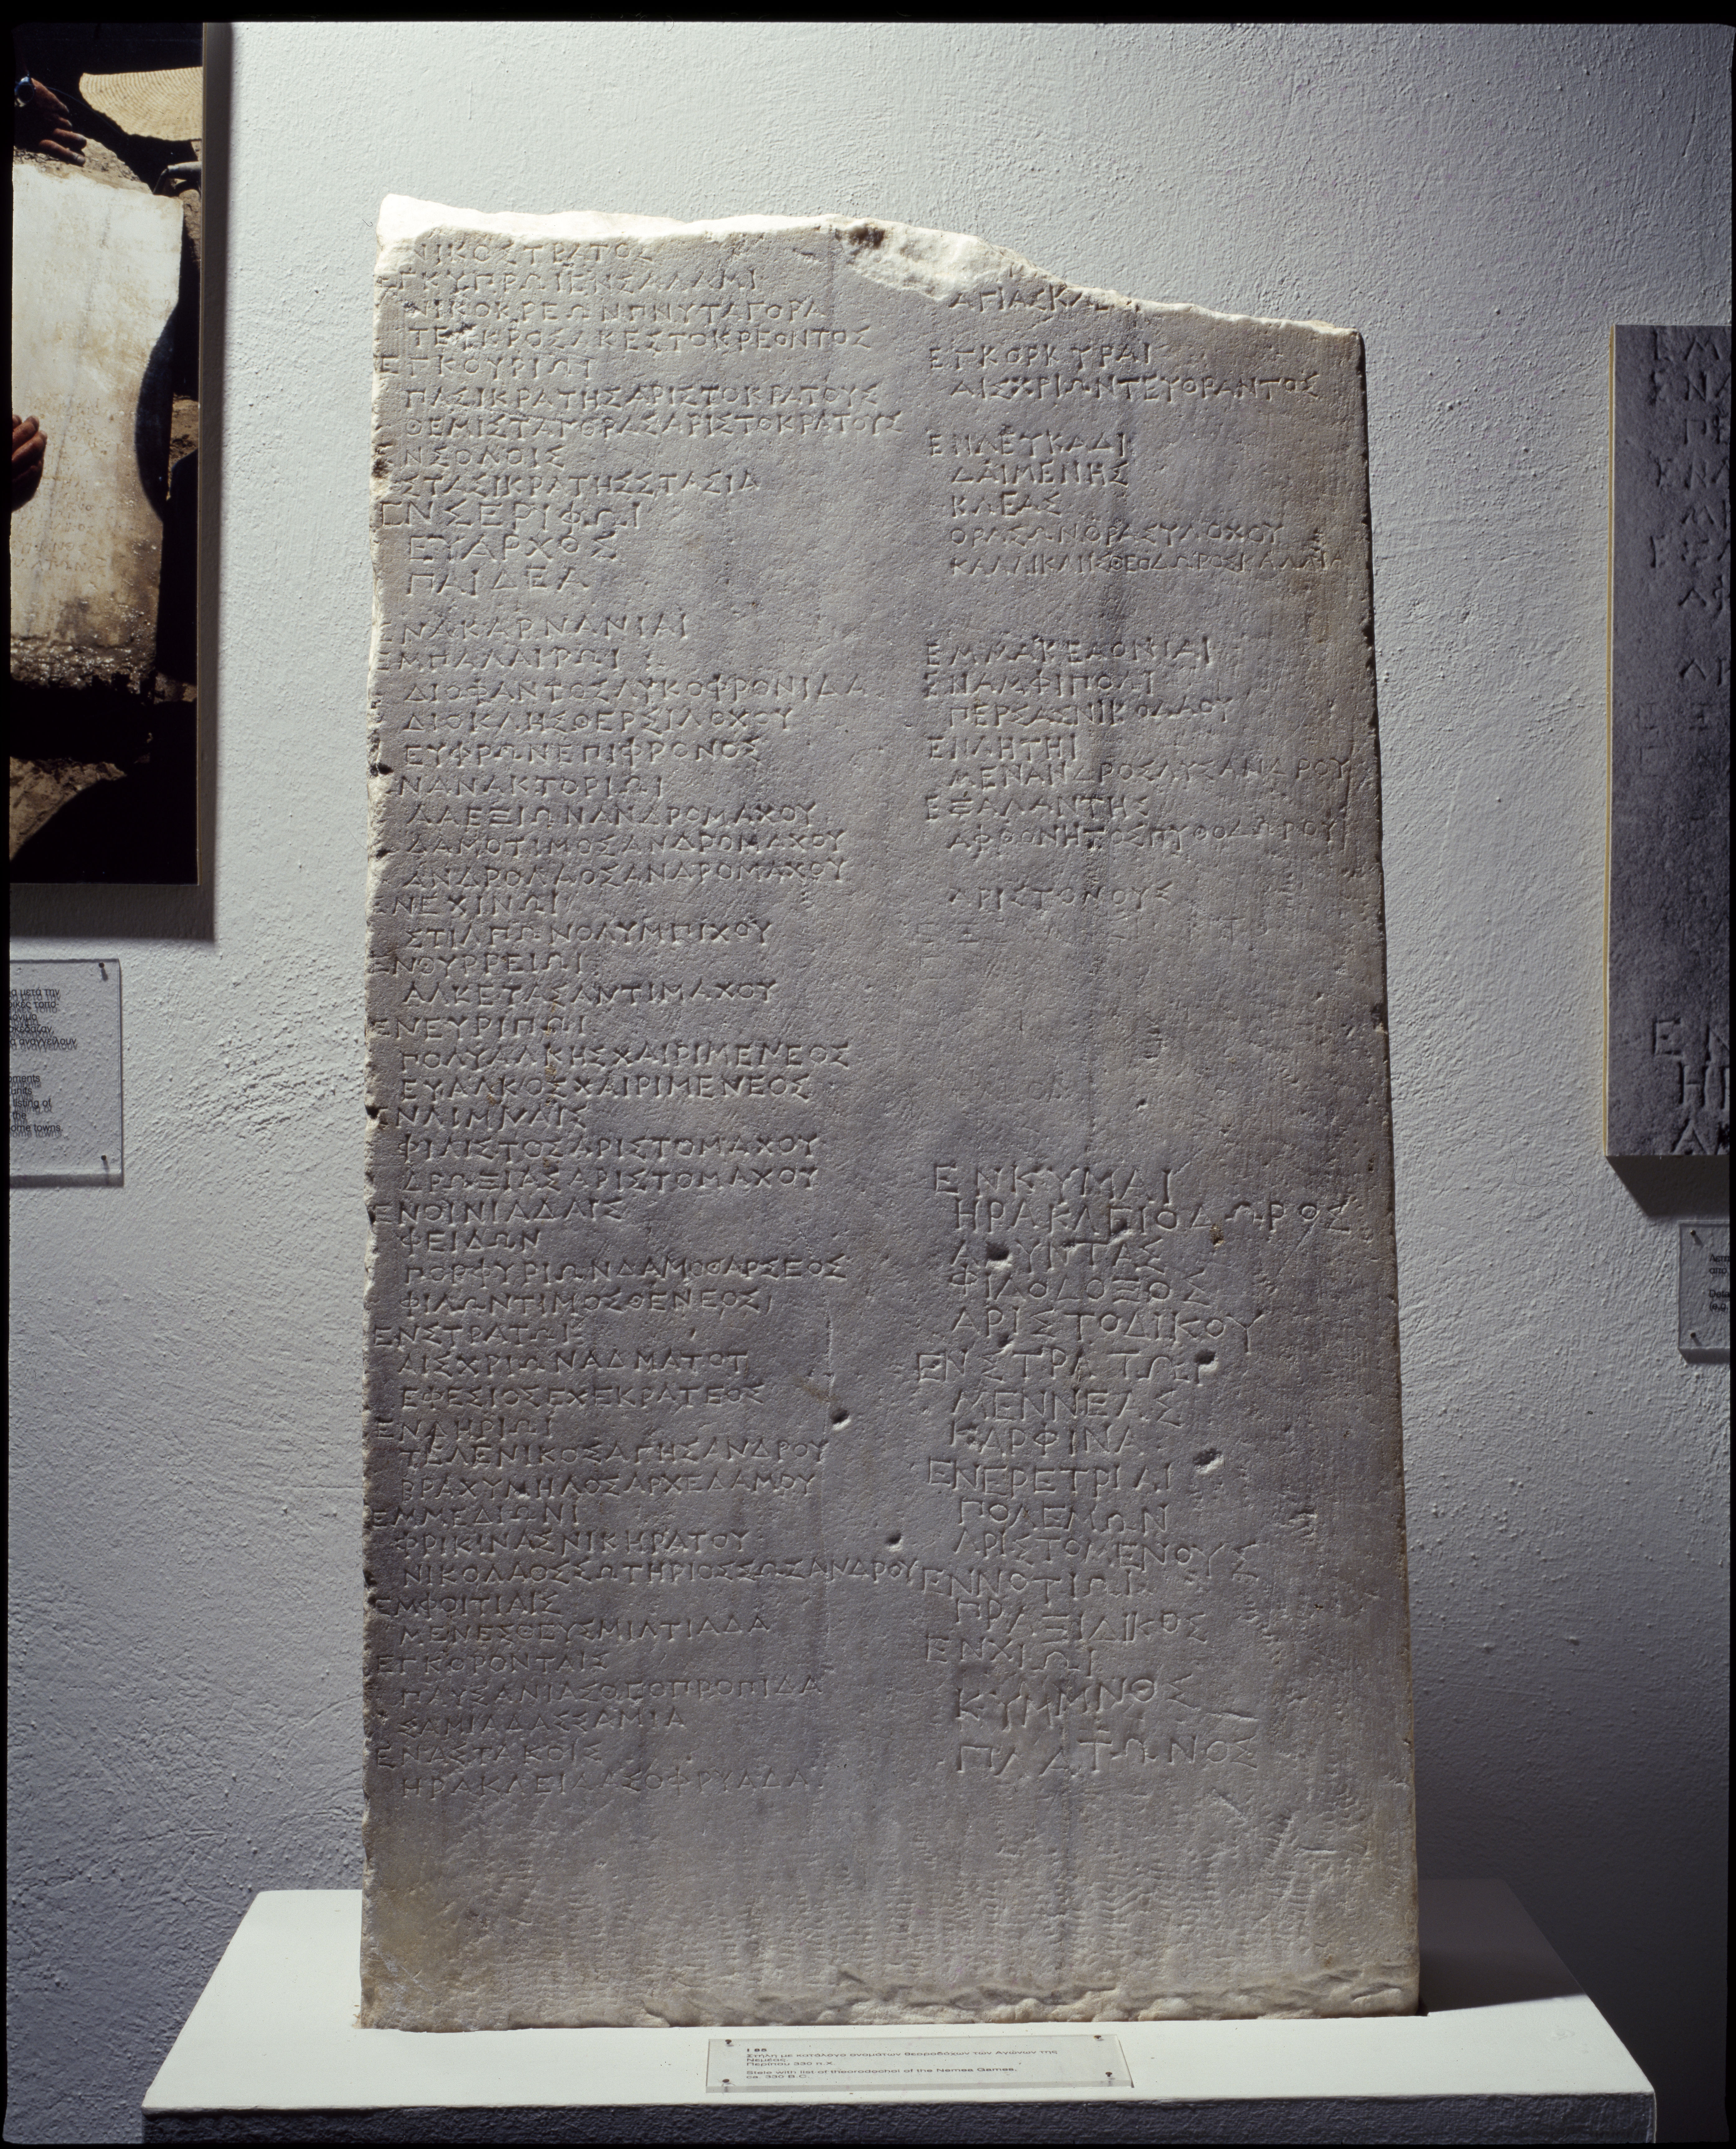 ΝΙΚΟΣΤΡΑΤΟΣ
ΕΓΚΥΠΡΩΙΕΝΣΑΛΑΜΙ
ΝΙΚΟΚΡΕΩΝΠΝΥΤΑΓΟΡΑ
ΤΕΥΚΡΟΣΑΚΕΣΤΟΚΡΕΟΝΤΟΣ
ΕΓΚΟΥΡΙΩΙ
ΠΑΣΙΚΡΑΤΗΣΑΡΙΣΤΟΚΡΑΤΟΥΣ
ΘΕΜΙΣΤΑΓΟΡΑΣΑΡΙΣΤΟΚΡΑΤΟΥΣ
ΕΝΣΟΛΟΙΣ
ΣΤΑΣΙΚΡΑΤΗΣΣΤΑΣΙΑ
ΕΝΣΕΡΙΦΩΙ
ΕΥΑΡΧΟΣ
ΠΑΙΔΕΑ
ΕΝΑΚΑΡΝΑΝΙΑΙ
ΕΜΠΑΛΑΙΡΩΙ
ΔΙΟΦΑΝΤΟΣΛΥΚΟΦΡΟΝΙΔΑ
ΔΙΟΚΛΗΣΘΕΡΣΙΛΟΧΟΥ
ΕΥΦΡΩΝΕΠΙΦΡΟΝΟΣ
ΕΝΑΝΑΚΤΟΡΙΩΙ
ΑΛΕΞΙΩΝΑΝΔΡΟΜΑΧΟΥ
ΔΑΜΟΤΙΜΟΣΑΝΔΡΟΜΑΧΟΥ
ΑΝΔΡΟΛΑΟΣΑΝΔΡΟΜΑΧΟΥ
ΕΝΕΧΙΝΩΙ
ΣΤΙΛΠΩΝΟΛΥΜΠΙΧΟΥ
ΕΝΘΥΡΡΕΙΩΙ
ΑΛΚΕΤΑΣΑΝΤΙΜΑΧΟΥ
ΕΝΕΥΡΙΠΩΙ
ΠΟΛΥΑΛΚΗΣΧΑΙΡΙΜΕΝΕΟΣ
ΕΥΑΛΚΟΣΧΑΙΡΙΜΕΝΕΟΣ
ΕΝΛΙΜΝΑΙΣ
ΦΙΛΙΣΤΟΣΑΡΙΣΤΟΜΑΧΟΥ
ΔΡΩΞΙΑΣΑΡΙΣΤΟΜΑΧΟΥ
ΕΝΟΙΝΙΑΔΑΙΣ
ΦΕΙΔΩΝ
ΠΟΡΦΥΡΙΩΝΔΑΜΟΘΑΡΣΕΟΣ
ΦΙΛΩΝΤΙΜΟΣΘΕΝΕΟΣ
ΕΝΣΤΡΑΤΩΙ
ΑΙΣΧΡΙΩΝΑΔΜΑΤΟΥ
ΕΦΕΣΙΟΣΕΧΕΚΡΑΤΕΟΣ
ΕΝΔΗΡΙΩΙ
ΤΕΛΕΝΙΚΟΣΑΓΗΣΑΝΔΡΟΥ
ΒΡΑΧΥΜΗΛΟΣΑΡΧΕΔΑΜΟΥ
ΕΜΜΕΔΙΩΝΙ
ΦΡΙΚΙΝΑΣΝΙΚΗΡΑΤΟΥ
ΝΙΚΟΛΑΟΣΣΩΤΗΡΙΟΣΣΩΣΑΝΔΡΟΥ
ΕΜΦΟΙΤΙΑΙΣ
ΜΕΝΕΣΘΕΥΣΜΙΛΤΙΑΔΑ
ΕΓΚΟΡΟΝΤΑΙΣ
ΠΑΥΣΑΝΙΑΣΘΕΟΠΡΟΠΙΔΑ
ΣΑΜΙΑΔΑΣΣΑΜΙΑ
ΕΝΑΣΤΑΚΟΙΣ
ΗΡΑΚΛΕΙΔΑΣΟΦΡΥΑΔΑ
ΕΓΚΟΡΚΥΡΑΙ
ΑΙΣΧΡΙΩΝΤΕΥΘΡΑΝΤΟΣ
ΕΝΛΕΥΚΑΔΙ
ΔΑΙΜΕΝΗΣ
ΚΛΕΑΣ
ΘΡΑΣΩΝΘΡΑΣΥΛΟΧΟΥ
ΚΑΛΛΙΚΛΗΣΘΕΟΔΩΡΟΣΚΑΛΛΙΑ
ΕΜΜΑΚΕΔΟΝΙΑΙ
ΕΝΑΜΦΙΠΟΛΙ
ΠΕΡΣΑΣΝΙΚΟΛΑΟΥ
ΕΝΛΗΤΗΙ
ΜΕΝΑΝΔΡΟΣΛΥΣΑΝΔΡΟΥ
ΕΞΑΛΑΝΤΗΣ
ΑΦΘΟΝΗΤΟΣΠΥΘΟΔΩΡΟΥ
ΑΡΙΣΤΟΝΟΥΣ
ΕΝΚΥΜΑΙ
ΗΡΑΚΛΠΟΔΩΡΟΣ
ΑΜΥΝΤΑΣ
ΦΙΛΟΔΟΞΟΣ
ΑΡΙΣΤΟΔΙΚΟΥ
ΕΝΣΤΡΑΤΩΙ
ΜΕΝΝΕΑΣ
ΚΑΡΦΙΝΑ
ΕΝΕΡΕΤΡΙΑΙ
ΠΟΛΕΜΩΝ
ΑΡΙΣΤΟΜΕΝΟΥΣ
ΕΝΝΟΤΙΩΙ
ΠΡΑΞΙΔΙΚΟΣ
ΕΝΧΙΩΙ
ΚΥΜΜΝΟΣ
ΠΛΑΤΩΝΟΣ
Ι 85
Στήλη με κατάλογο ονομάτων θεαροδόχων των Αγώνων της
Νεμέας.
Περίπου 330 π.Χ.
Stele with list of thearodochoi of the Nemea Games,
ca. 330 B.C.